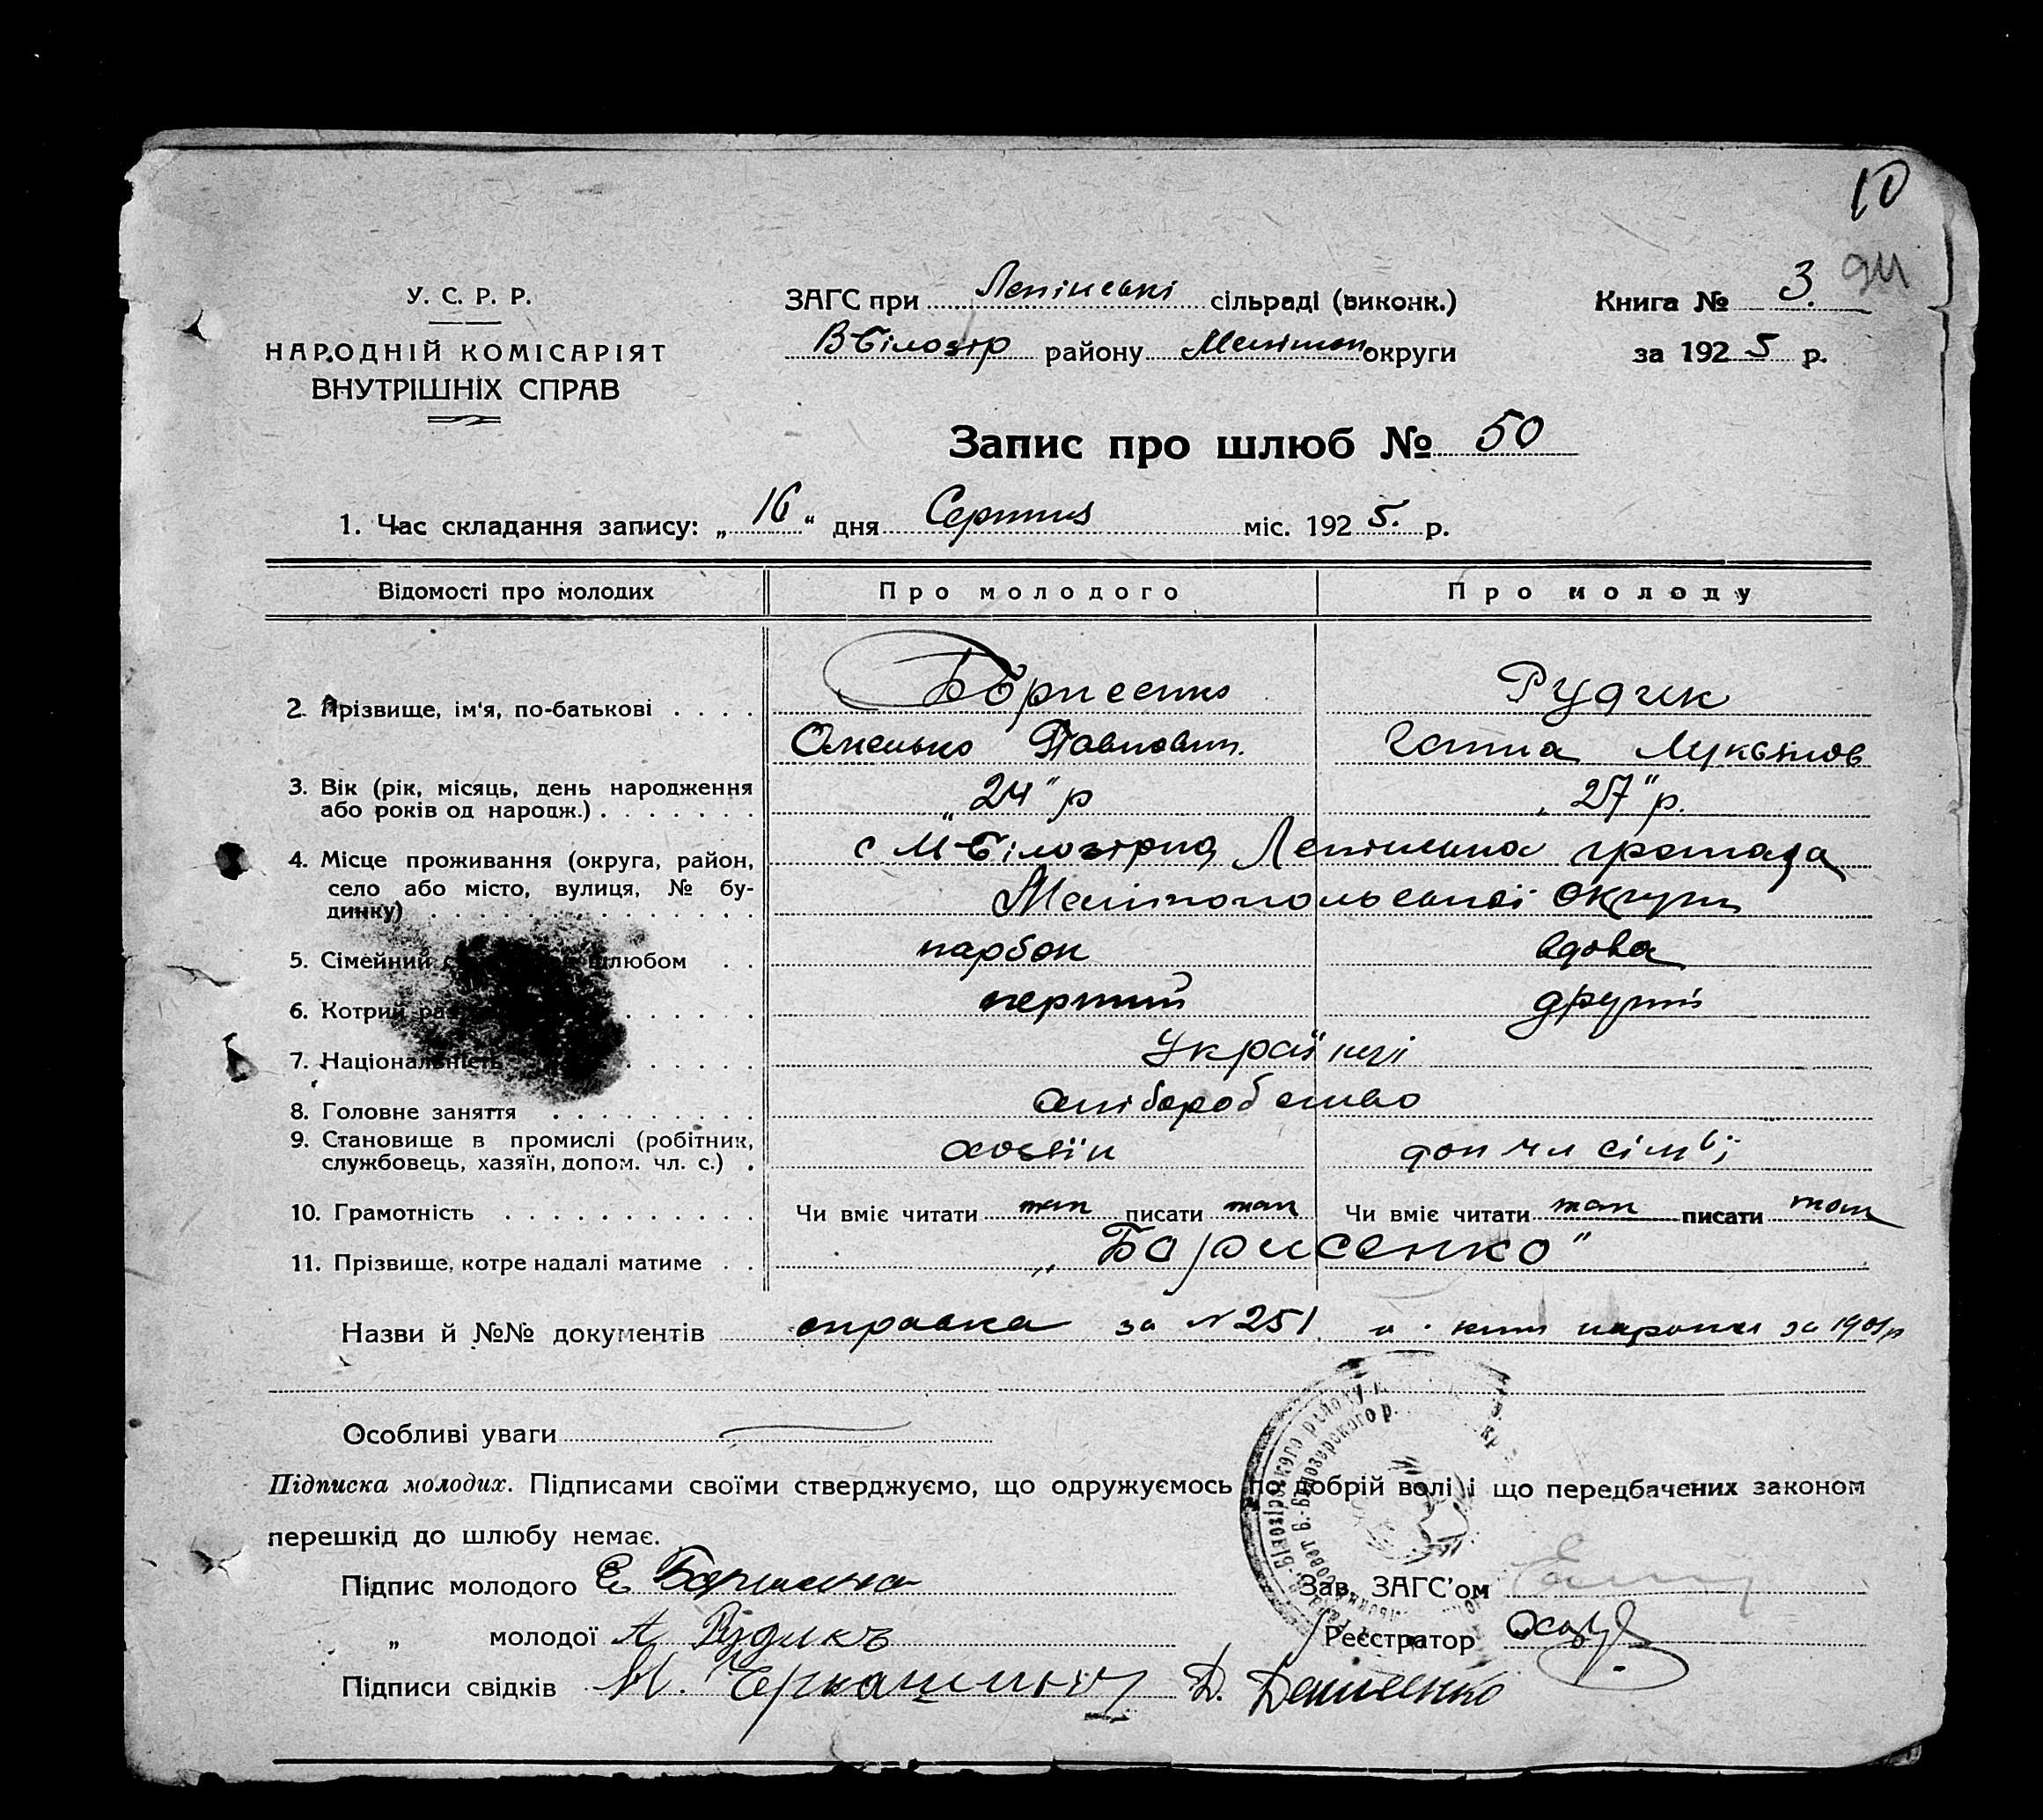 10
94
У. С. Р. Р.
НАРОДНІЙ КОМІСАРІЯТ
ВНУТРІШНІХ СПРАВ
ЗАГС при Ленінські сільраді (виконк.)
В-Білозір району Мелітоп округи
Книга № 3.
за 1925 р.
Запис про шлюб № 50
1. Час складання запису: „16“ дня Серпня міс. 1925. р.
Відомості про молодих Про молодого Про молоду
2. Прізвище, ім'я, по-батькові . . . . Борисенко Рудик
Омелько Павлович. Ганна Лукьянов
3. Вік (рік, місяць, день народження
або років од народж.) . . . . . . . „24" р „27" р.
4. Місце проживання (округа, район, с М-Білозірка, Ленінська громада
село або місто, вулиця, № бу-
динку) . . . . . . . . . . . . . . Мелітопольської округи
5. Сімейний шлюбом . . парбок вдова
6. Котрий раз . . . . . . перший другий
7. Національність . . . . . . Українці
8. Головне заняття . . . . . . . . . хліборобство
9. Становище в промислі (робітник,
службовець, хазяїн, допом. чл. с.) . хозяїн доп чл сімьї
10. Грамотність . . . . . . . . . . . Чи вміє читати так писати так Чи вміє читати так писати так
11. Прізвище, котре надалі матиме . . „Борисенко"
Назви й №№ документів справка за №251 и книг народж за 1901р
Особливі уваги
Підписка молодих. Підписами своїми стверджуємо, що одружуємось по добрій волі і що передбачених законом
перешкід до шлюбу немає.
Підпис молодого Е Борисенко
Зав. ЗАГС'ом
„ молодої А Рудикъ
Реєстратор
Підписи свідків М. Черкашин Д. Денисенко